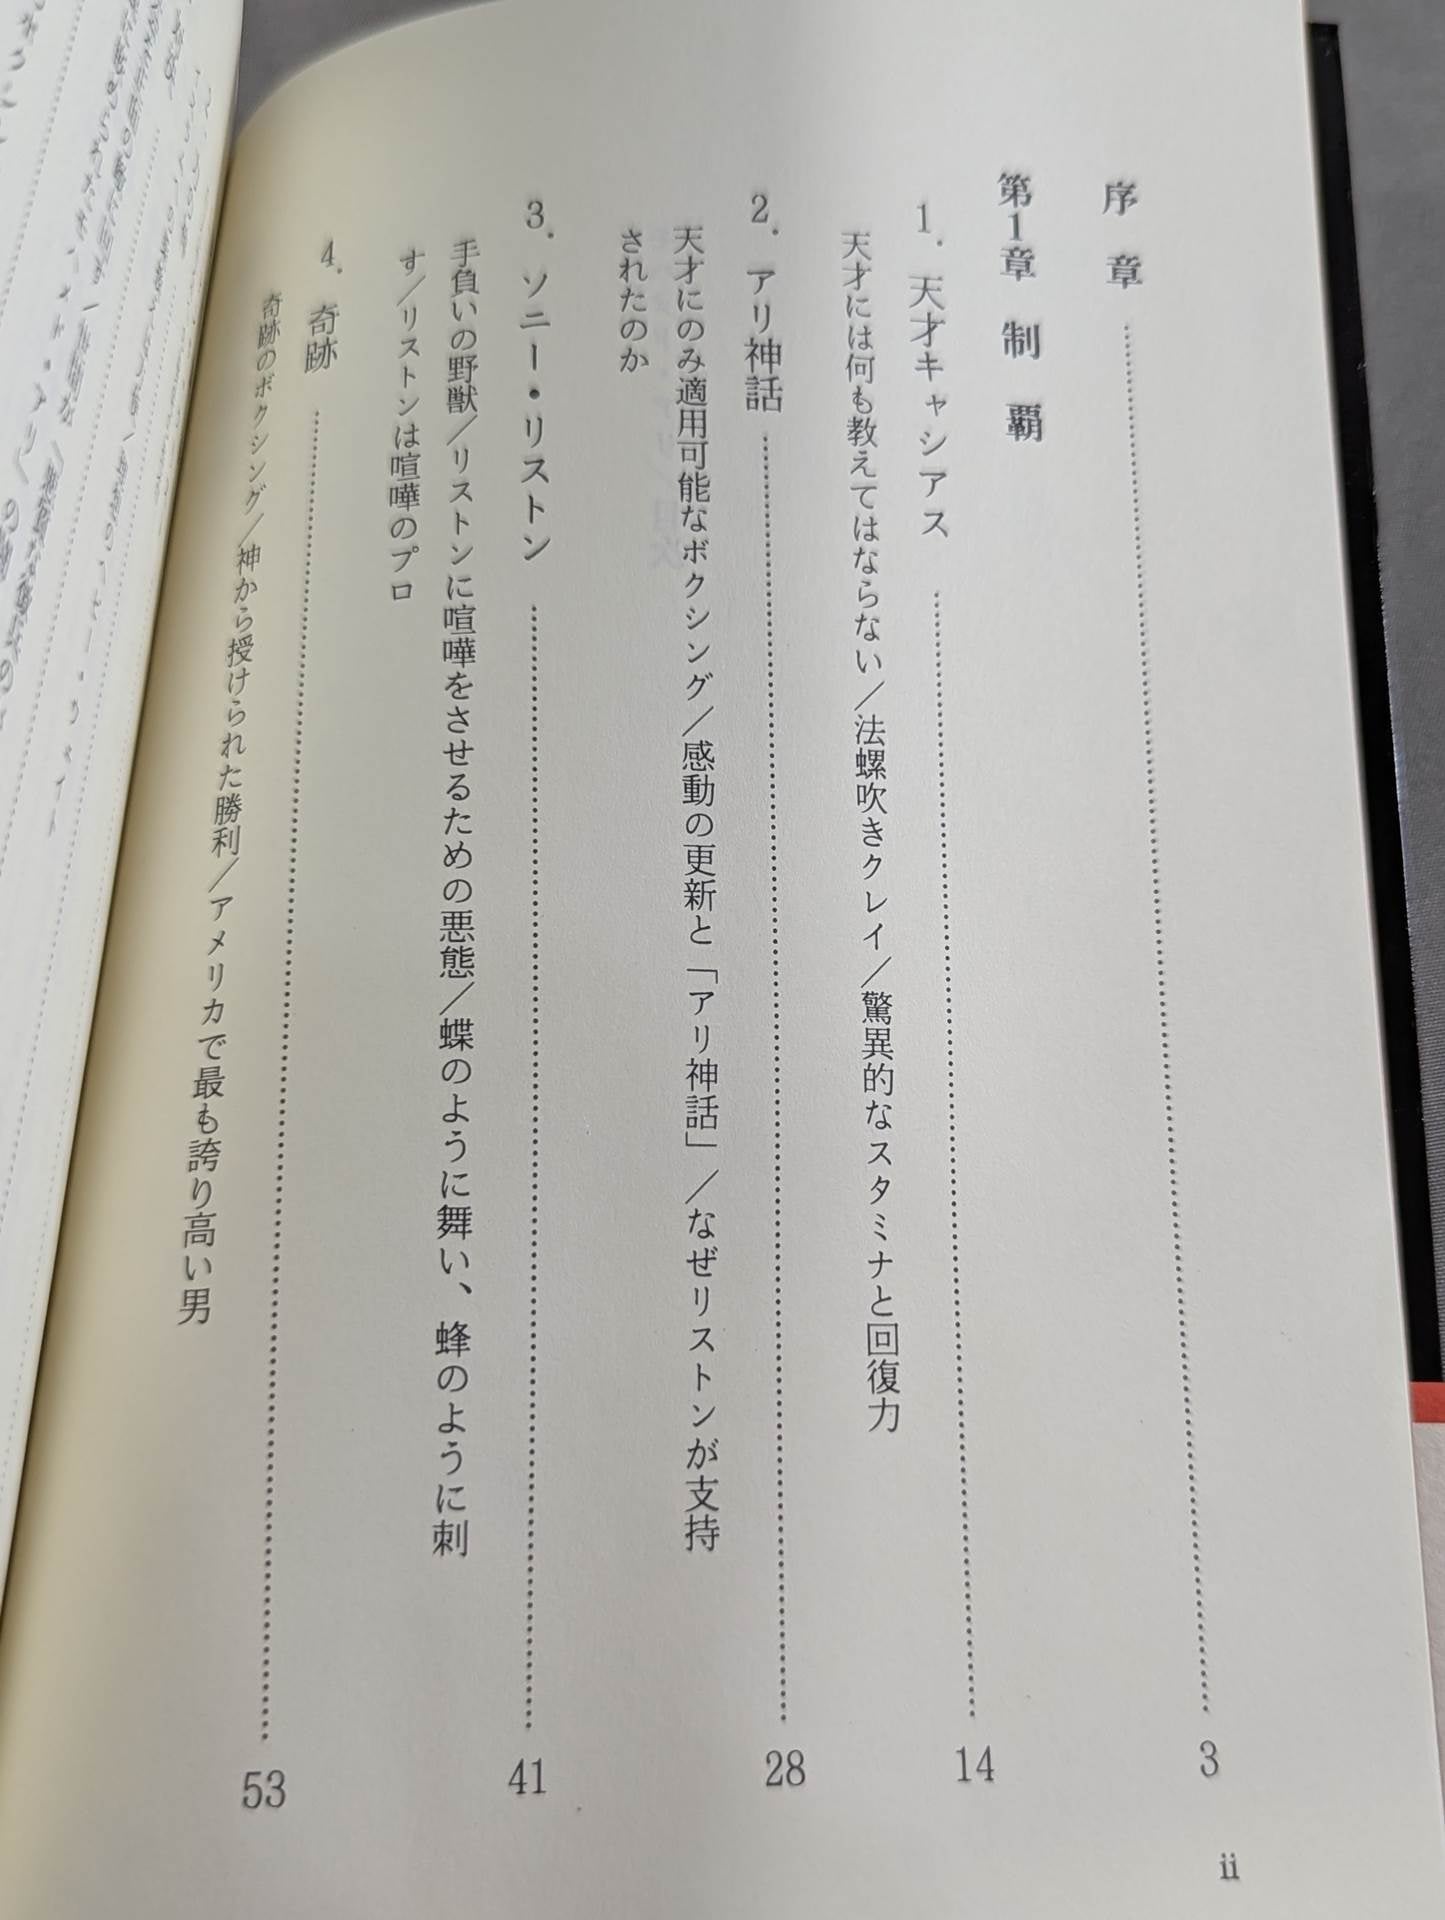 序章 3
第1章 制覇
1. 天才キャシアス 14
天才には何も教えてはならない/法螺吹きクレイ/驚異的なスタミナと回復力
2. アリ神話 28
天才にのみ適用可能なボクシング/感動の更新と「アリ神話」/なぜリストンが支持
されたのか
3. ソニー・リストン 41
手負いの野獣/リストンに喧嘩をさせるための悪態/蝶のように舞い、蜂のように刺
す/リストンは喧嘩のプロ
4. 奇跡 53
奇跡のボクシング/神から授けられた勝利/アメリカで最も誇り高い男
ii